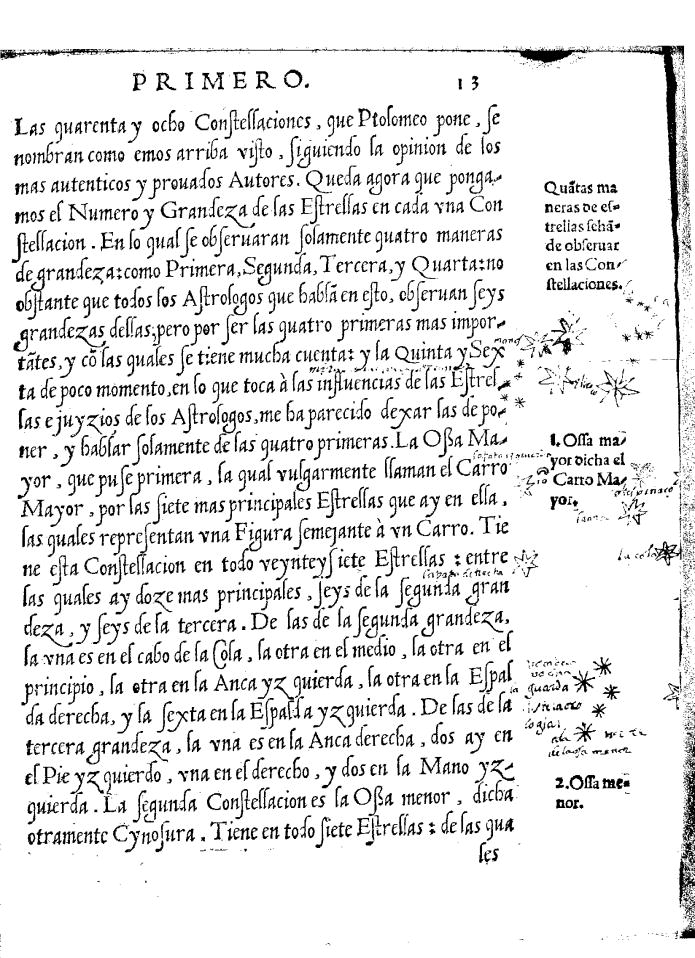 PRIMERO. 13
Las quarenta y ocho Conſtellaciones, que Ptolomeo pone, ſe
nombran como emos arriba viſto, ſiguiendo la opinion de los
mas autenticos y prouados Autores. Queda agora que ponga-
mos el Numero y Grandeza de las Eſtrellas en cada vna Con
ſtellacion. En lo qual ſe obſeruaran ſolamente quatro maneras
de grandeza: como Primera, Segunda, Tercera, y Quarta: no
obſtante que todos los Aſtrologos que hablã en eſto, obſeruan ſeys
grandezas dellas; pero por ſer las quatro primeras mas impor-
tãtes, y cõ las quales ſe tiene mucha cuenta: y la Quinta y Sex
ta de poco momento, en lo que toca à las influencias de las Eſtrel-
las e juyzios de los Aſtrologos, me ha parecido dexar las de po-
ner, y hablar ſolamente de las quatro primeras. La Oſſa Ma-
yor, que puſe primera, la qual vulgarmente llaman el Carro
Mayor, por las ſiete mas principales Eſtrellas que ay en ella,
las quales repreſentan vna Figura ſemejante à vn Carro. Tie
ne eſta Conſtellacion en todo veynte y ſiete Eſtrellas: entre
las quales ay doze mas principales, ſeys de la ſegunda gran
deza, y ſeys de la tercera. De las de la ſegunda grandeza,
la vna es en el cabo de la Cola, la otra en el medio, la otra en el
principio, la otra en la Anca yzquierda, la otra en la Eſpal
da derecha, y la ſexta en la Eſpalda yzquierda. De las de la
tercera grandeza, la vna es en la Anca derecha, dos ay en
el Pie yzquierdo, vna en el derecho, y dos en la Mano yz-
quierda. La ſegunda Conſtellacion es la Oſſa menor, dicha
otramente Cynoſura. Tiene en todo ſiete Eſtrellas: de las qua
les
Quãtas ma
neras de eſ-
trellas ſehã-
de obſeruar
en las Con-
ſtellaciones.
1. Oſſa ma-
yor dicha el
Carro Ma-
yor.
la cola
guarda
de la oſa menor
2. Oſſa me-
nor.